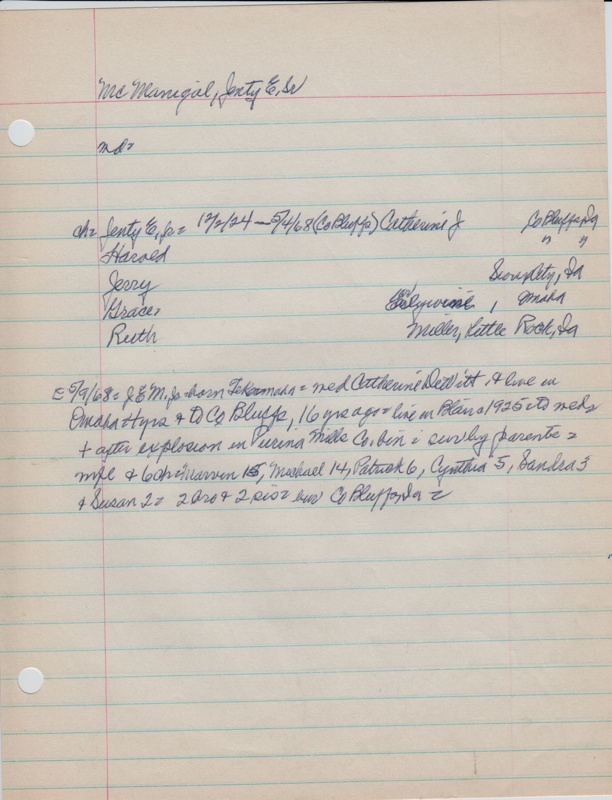 Mc Manigal, Jenty E, Sr
md=
ch= Jenty E, Jr= 12/2/24 — 5/4/68 (Co Bluffs) Catherine J Co Bluffs, Ia
Harold " "
Jerry Sioux City, Ia
Grace= , Omaha
Ruth Miller, Little Rock, Ia
E 5/9/68= J E M, Jr= born Tekamah= med Catherine DeWitt & live in
Omaha 4 yrs & to Co Bluffs, 16 yrs ago= live in Blair 1925 to med=
+ after explosion in Purina Mills Co. bin = surv by parents=
wife & 6 ch= Marvin 15, Michael 14, Patrick 6, Cynthia 5, Sandra 3
& Susan 2= 2 bro & 2 sis= bur Co Bluffs, Ia =